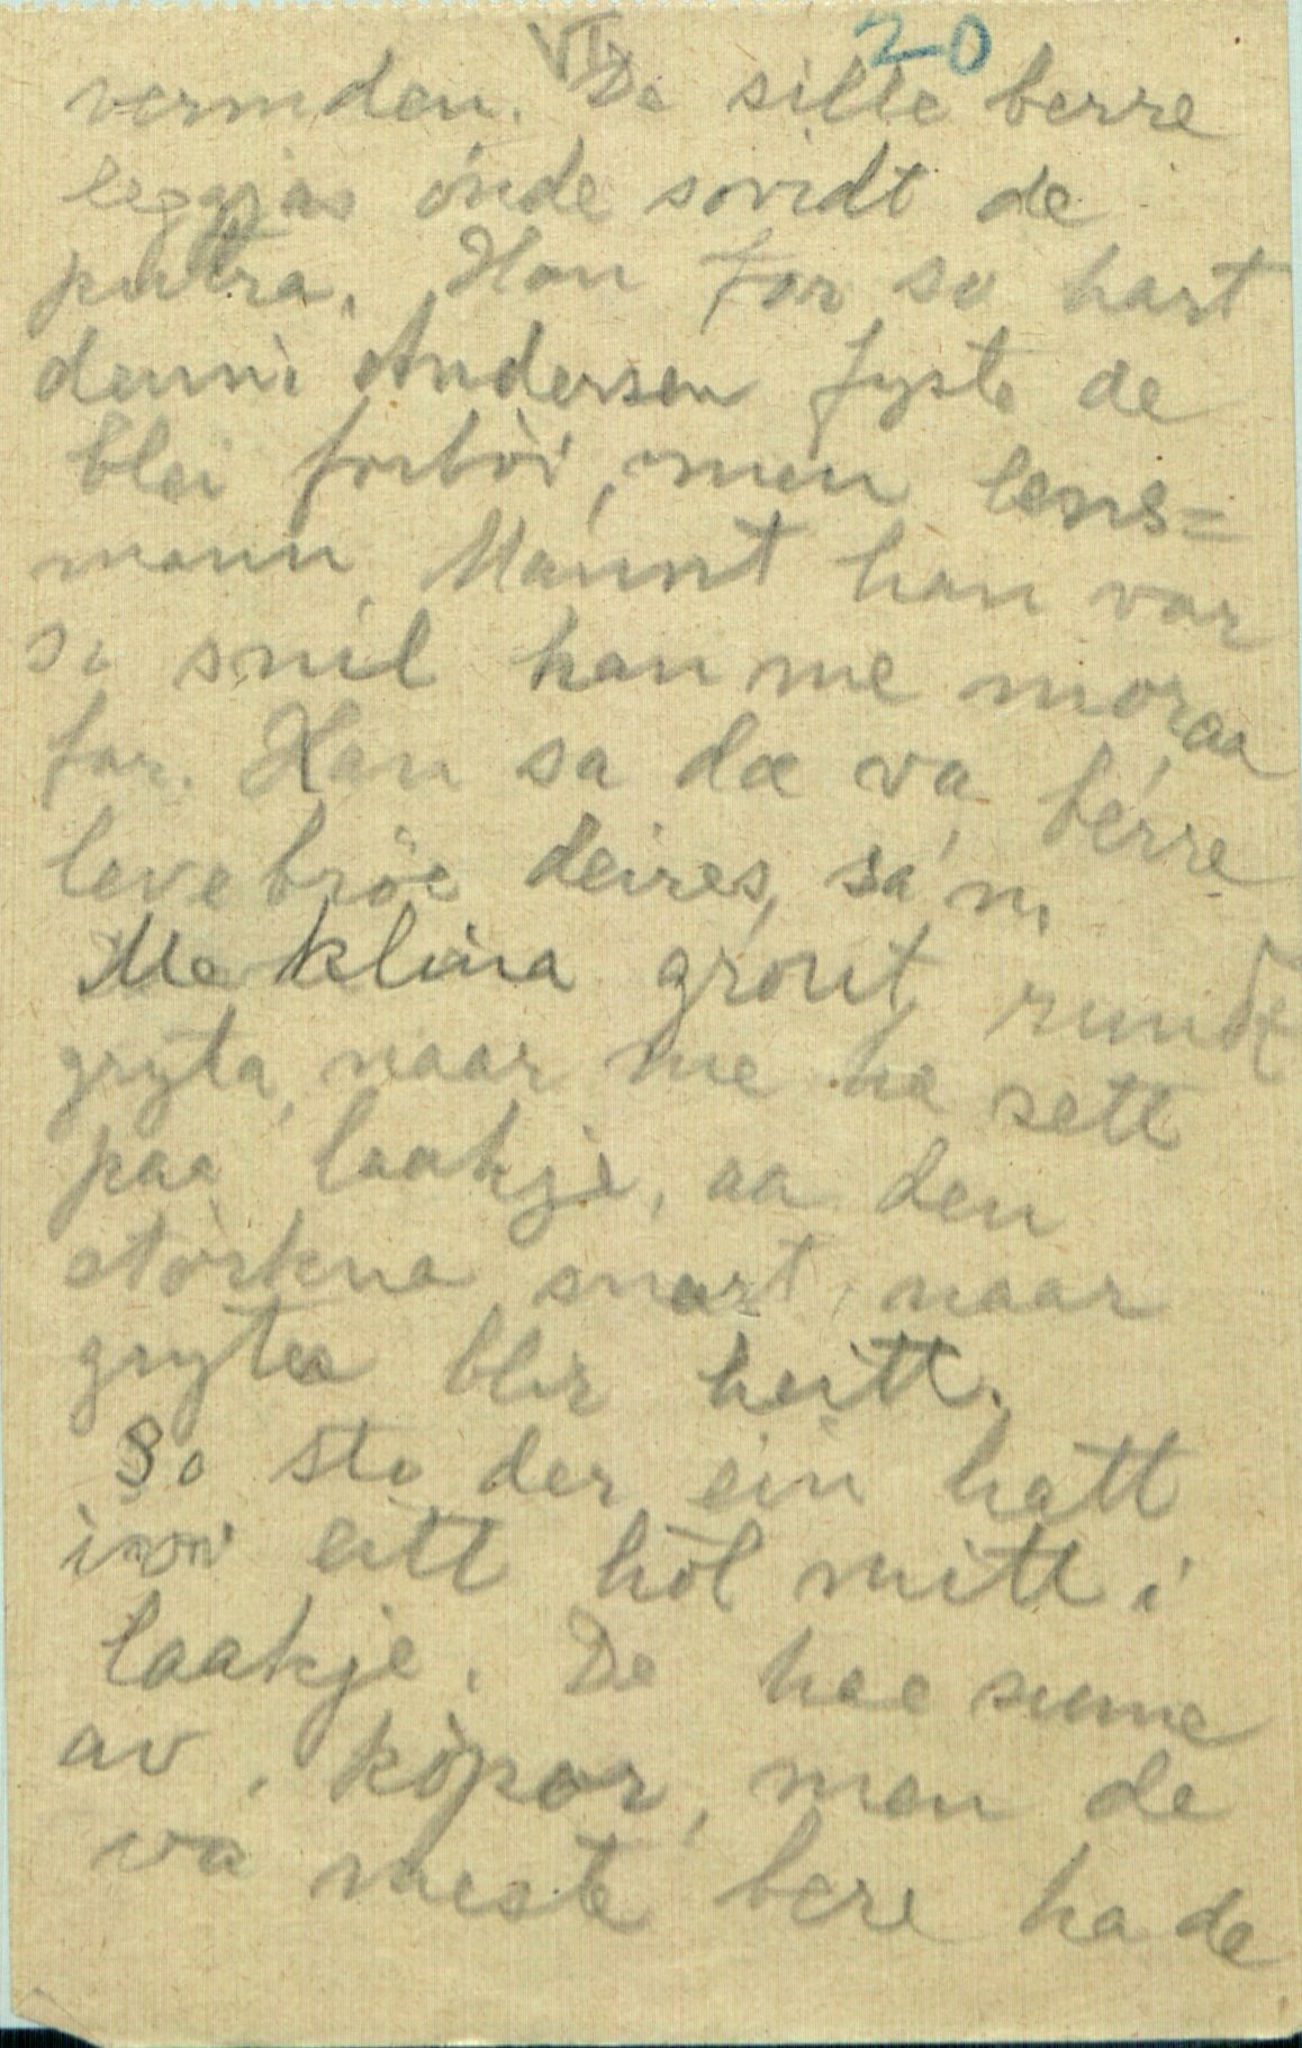 VI 20
vermden. De sille berre
leggjas onde sovidt de
putra. Han for so hart
denni Andersen fyste de
blei forbòi, men lens=
mann Maurit han var
so snil han me moraa
far. Han sa dæ va berre
levebröe deires, sa'n.
Me klina grout rundt
gryta, naar me he sett
paa laakje, aa den
storkna snart, naar
gryta blir heitt.
So sto der ein hatt
ivvi eitt hòl mitt i
laakje. De hae sume
av kòpar, men de
va meste bere ha de